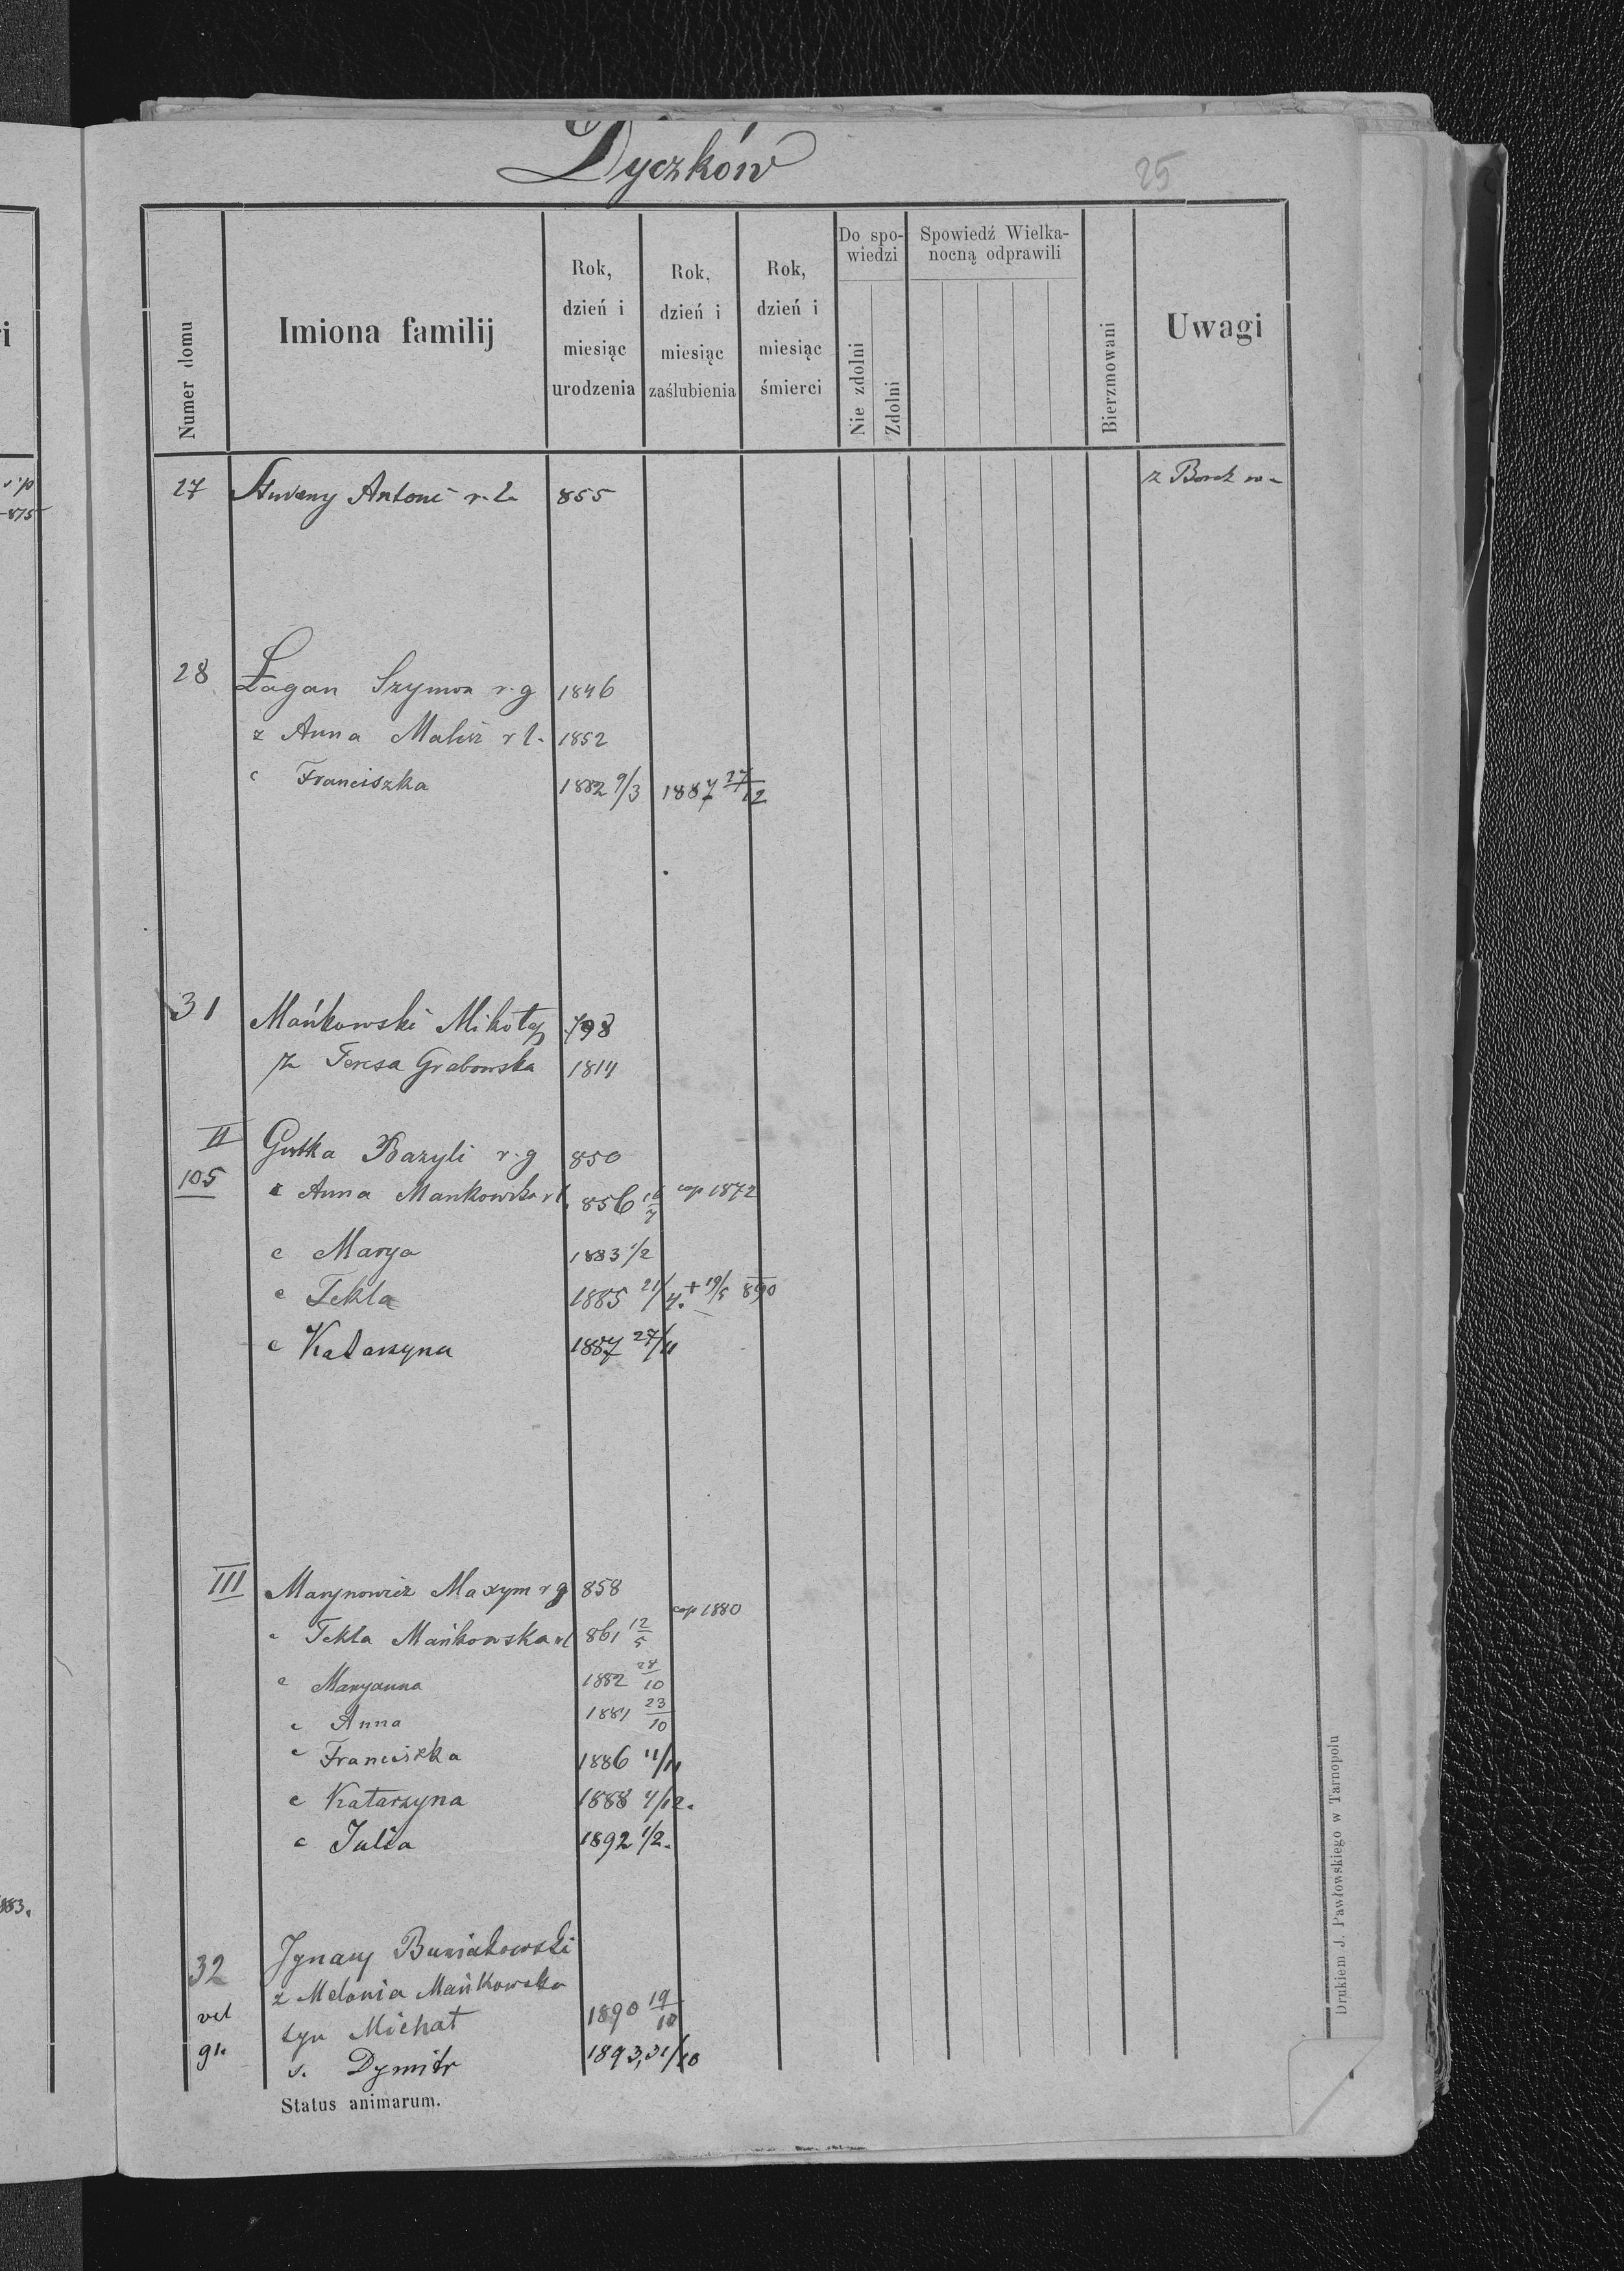 Dyczków
25
Numer domu
Imiona familij
Rok, dzień i miesiąc urodzenia
Rok, dzień i miesiąc zaślubienia
Rok, dzień i miesiąc śmierci
Do spowiedzi
Nie zdolni
Zdolni
Spowiedź Wielkanocną odprawili
Bierzmowani
Uwagi
27 Antoni r. l. 855 z
28 Łagan Szymon r. g 1846
z Anna r l. 1852
c Franciszka 1882 9/3 1887 27/12
31 Mańkowski Mikołaj 798
z Teresa Grabowska 1814
II Gutka Bazyli r. g 850
105 z Anna Mankowska rl. 856 16/7 cop 1872
c Marya 1883 1/2
c Tekla 1885 21/4. + 19/5 890
c Katarzyna 1887 27/11
III Marynowicz Maxym r g 858
Tekla Mańkowska rl 861 12/5 cop 1880
c Maryanna 1882 28/10
c Anna 1881 23/10
c Franciszka 1886 11/11
c Katarzyna 1888 4/12.
c Julia 1892 1/2.
32 Ignacy Buniakowski
z Melania Mańkowska
vel syn Michał 1890 19/10
91. s. Dymitr 1893, 31/10
Status animarum.
Drukiem J. Pawłowskiego w Tarnopolu
875
883.